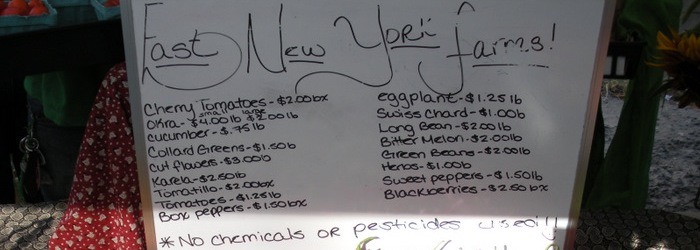 East New York Farms!
Cherry Tomatoes - $2.00 bx
small large
Okra - $4.00 lb $2.00 lb
cucumber - $.75 lb
Collard Greens - $1.50 b
cut flowers - $3.00 b
Karela - $2.50 lb
Tomatillo - $2.00 bx
Tomatoes - $1.25 lb
Box peppers - $1.50 bx
eggplant - $1.25 lb
Swiss Chard - $1.00 b
Long Bean - $2.00 lb
Bitter Melon - $2.00 lb
Green Beans - $2.00 lb
Herbs - $1.00 b
Sweet peppers - $1.50 lb
Blackberries - $2.50 bx
* No chemicals or pesticides used!!